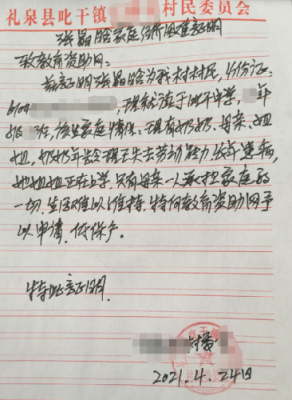 礼泉县叱干镇 村民委员会
张晶晗家庭经济困难证明
致教育资助网:
兹证明张晶晗为我村村民,身份证:
610 ,现就读于叱干中学, 年
级 班,该生家庭情况:现有奶奶、母亲、姐
姐,奶奶年老现已失去劳动能力,长年患病,
姐姐正在上学,只有母亲一人承担家庭的
一切.生活难以维持.特向教育资助网予
以申请.低保户.
特此证明.
2021.4.24日